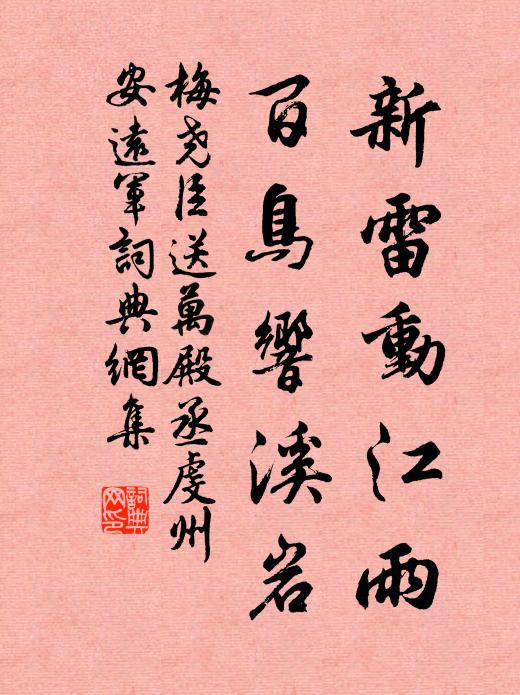 新雷動江雨
百鳥響溪岩
梅堯臣送萬殿丞虔州
安遠軍詞典網集
詞典網印